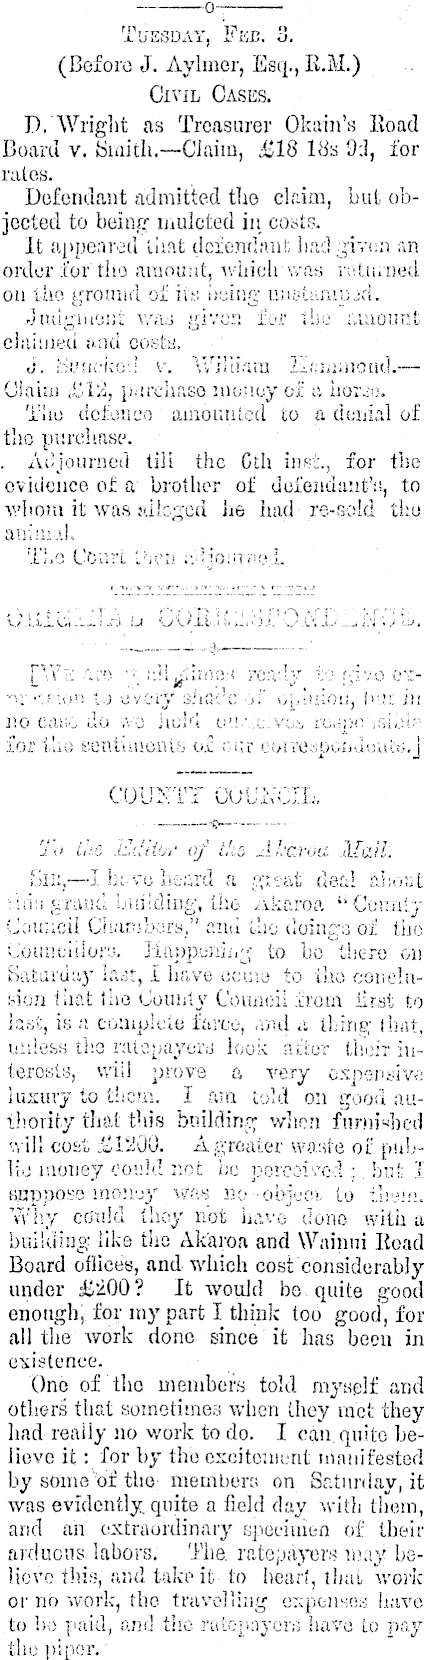 TUESDAY, FEB. 3.
(Before J. Aylmer, Esq., R.M.)
CIVIL CASES.
D. Wright as Treasurer Okain's Road
Board v. Smith.—Claim, £18 18s 9d, for
rates.
Defendant admitted the claim, but ob-
jected to being mulcted in costs.
It appeared that defendant had given an
order for the amount, which was returned
on the ground of its being unstamped.
Judgment was given for the amount
claimed and costs.
J. v. William Hammond.—
Claim £12, purchase money of a horse.
The defence amounted to a denial of
the purchase.
Adjourned till the 6th inst., for the
evidence of a brother of defendant's, to
whom it was alleged he had re-sold the
animal.
The Court then adjourned.
ORIGINAL CORRESPONDENCE.
[We are at all times ready to give ex-
pression to every shade of opinion, but in
no case do we hold ourselves responsible
for the sentiments of our correspondents.]
COUNTY COUNCIL.
To the Editor of the Akaroa Mail.
SIR,—I have heard a great deal about
this grand building, the Akaroa "County
Council Chambers," and the doings of the
Councillors. Happening to be there on
Saturday last, I have come to the conclu-
sion that the County Council from first to
last, is a complete farce, and a thing that,
unless the ratepayers look after their in-
terests, will prove a very expensive
luxury to them. I am told on good au-
thority that this building when furnished
will cost £1200. A greater waste of pub-
lic money could not be perceived; but I
suppose money was no object to them.
Why could they not have done with a
building like the Akaroa and Wainui Road
Board offices, and which cost considerably
under £200? It would be quite good
enough, for my part I think too good, for
all the work done since it has been in
existence.
One of the members told myself and
others that sometimes when they met they
had really no work to do. I can quite be-
lieve it: for by the excitement manifested
by some of the members on Saturday, it
was evidently quite a field day with them,
and an extraordinary specimen of their
arduous labors. The ratepayers may be-
lieve this, and take it to heart, that work
or no work, the travelling expenses have
to be paid, and the ratepayers have to pay
the piper.